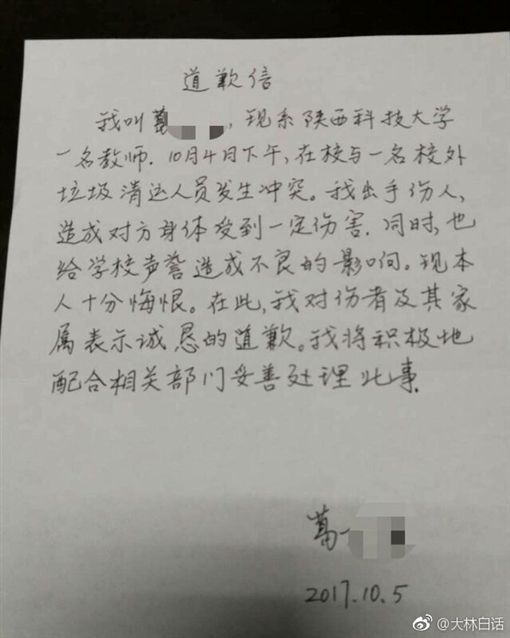 道歉信
我叫葛，现系陕西科技大学
一名教师．10月4日下午，在校与一名校外
垃圾清运人员发生冲突。我出手伤人，
造成对方身体受到一定伤害．同时，也
给学校声誉造成不良的影响。现本
人十分悔恨。在此，我对伤者及其家
属表示诚恳的道歉。我将积极地
配合相关部门妥善处理此事．
葛
2017.10.5
@大林白话